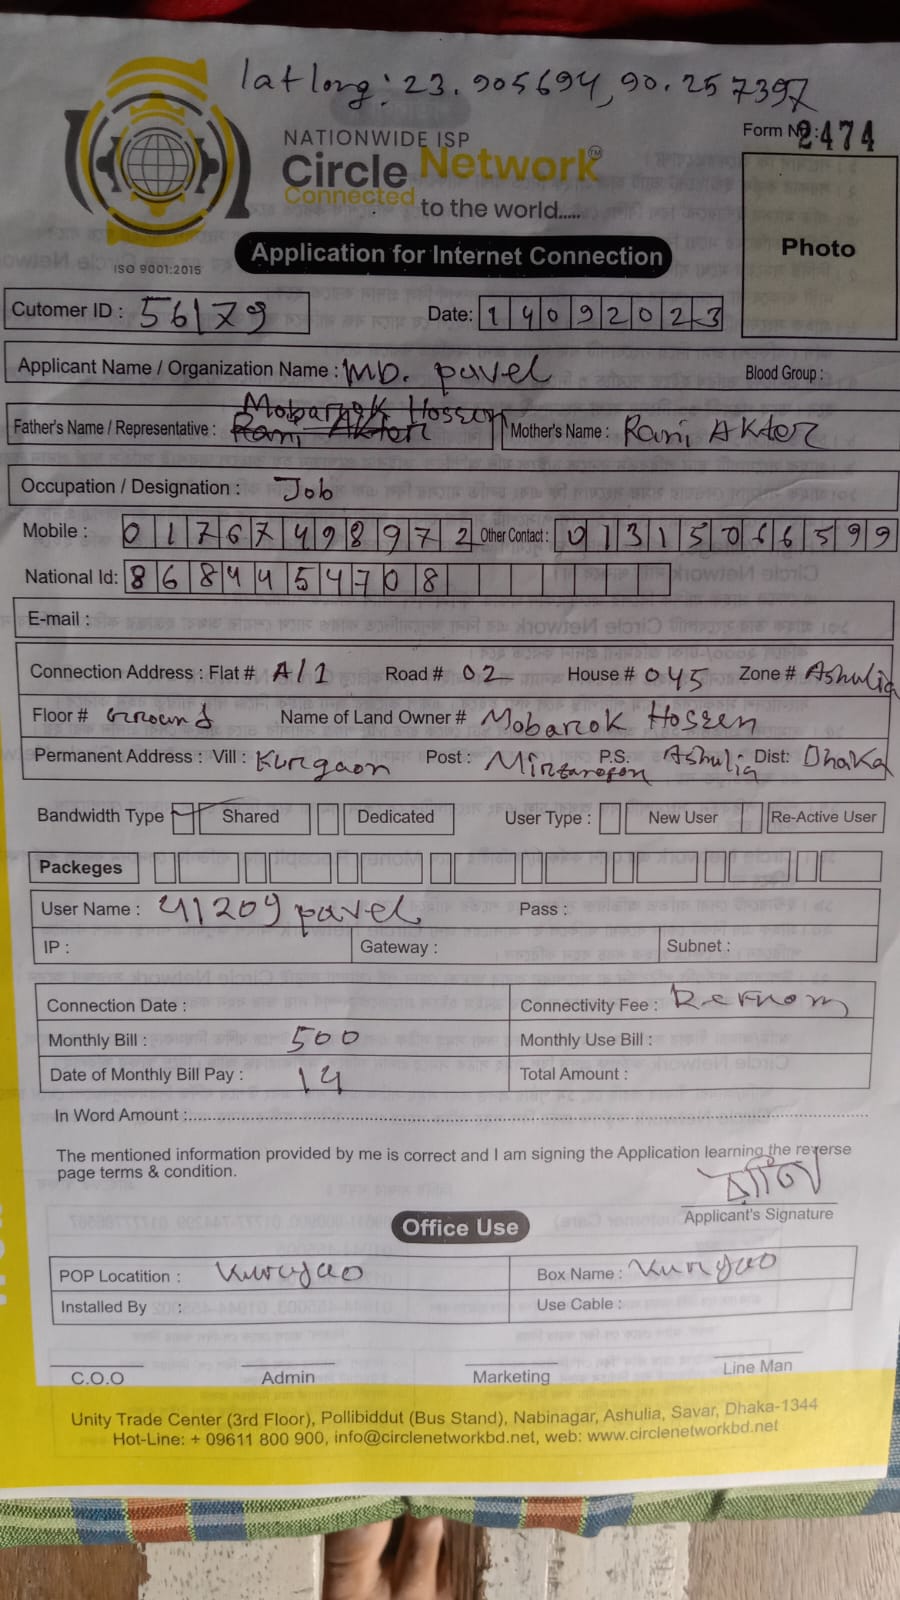 lat long: 23.905694, 90.257397
NATIONWIDE ISP
Circle Network TM
Connected to the world.....
ISO 9001:2015
Form No: 2474
Photo
Application for Internet Connection
Cutomer ID : 56179 Date: 14092023
Applicant Name / Organization Name : MD. pavel Blood Group :
Mobarok Hossen
Father's Name / Representative : Rani Aktor Mother's Name : Rani AKtor
Occupation / Designation : Job
Mobile : 01767498972 Other Contact : 01315066599
National Id: 8684454708
E-mail :
Connection Address : Flat # A/1 Road # 02 House # 045 Zone # Ashulia
Floor # Ground Name of Land Owner # Mobarok Hossen
Permanent Address : Vill : Kurgaon Post : P.S. Ashulia Dist: Dhaka
Bandwidth Type Shared Dedicated User Type : New User Re-Active User
Packeges
User Name : 41209pavel Pass :
IP : Gateway : Subnet :
Connection Date : Connectivity Fee :
Monthly Bill : 500 Monthly Use Bill :
Date of Monthly Bill Pay : 14 Total Amount :
In Word Amount :
The mentioned information provided by me is correct and I am signing the Application learning the reverse
page terms & condition.
Applicant's Signature
Office Use
POP Locatition : Kurgao Box Name : Kurgao
Installed By : Use Cable :
C.O.O Admin Marketing Line Man
Unity Trade Center (3rd Floor), Pollibiddut (Bus Stand), Nabinagar, Ashulia, Savar, Dhaka-1344
Hot-Line: + 09611 800 900, info@circlenetworkbd.net, web: www.circlenetworkbd.net